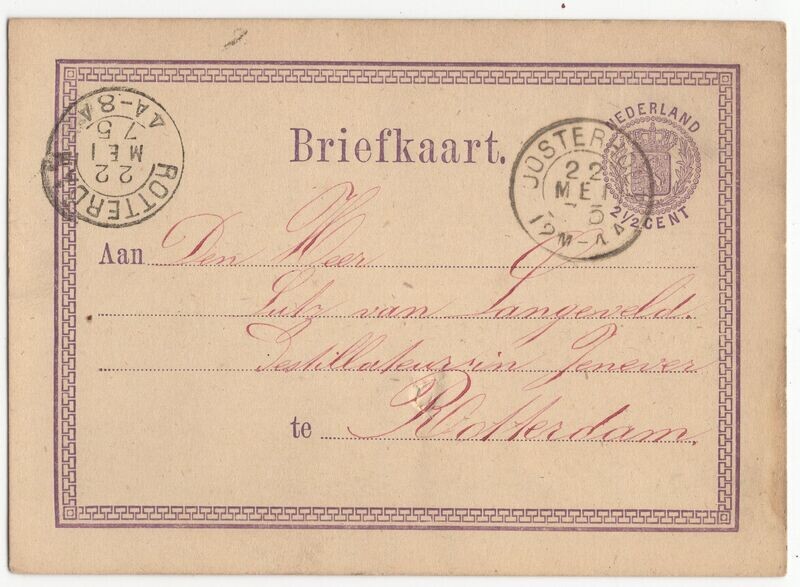 NEDERLAND
2½ CENT
Briefkaart.
OOSTERHO
22
MEI
75
12M-4A
ROTTERDAM
22
MEI
75
4A-8A
Aan Den Heer
Lutz van Langeveld.
Destillateur in Jenever
te Rotterdam.